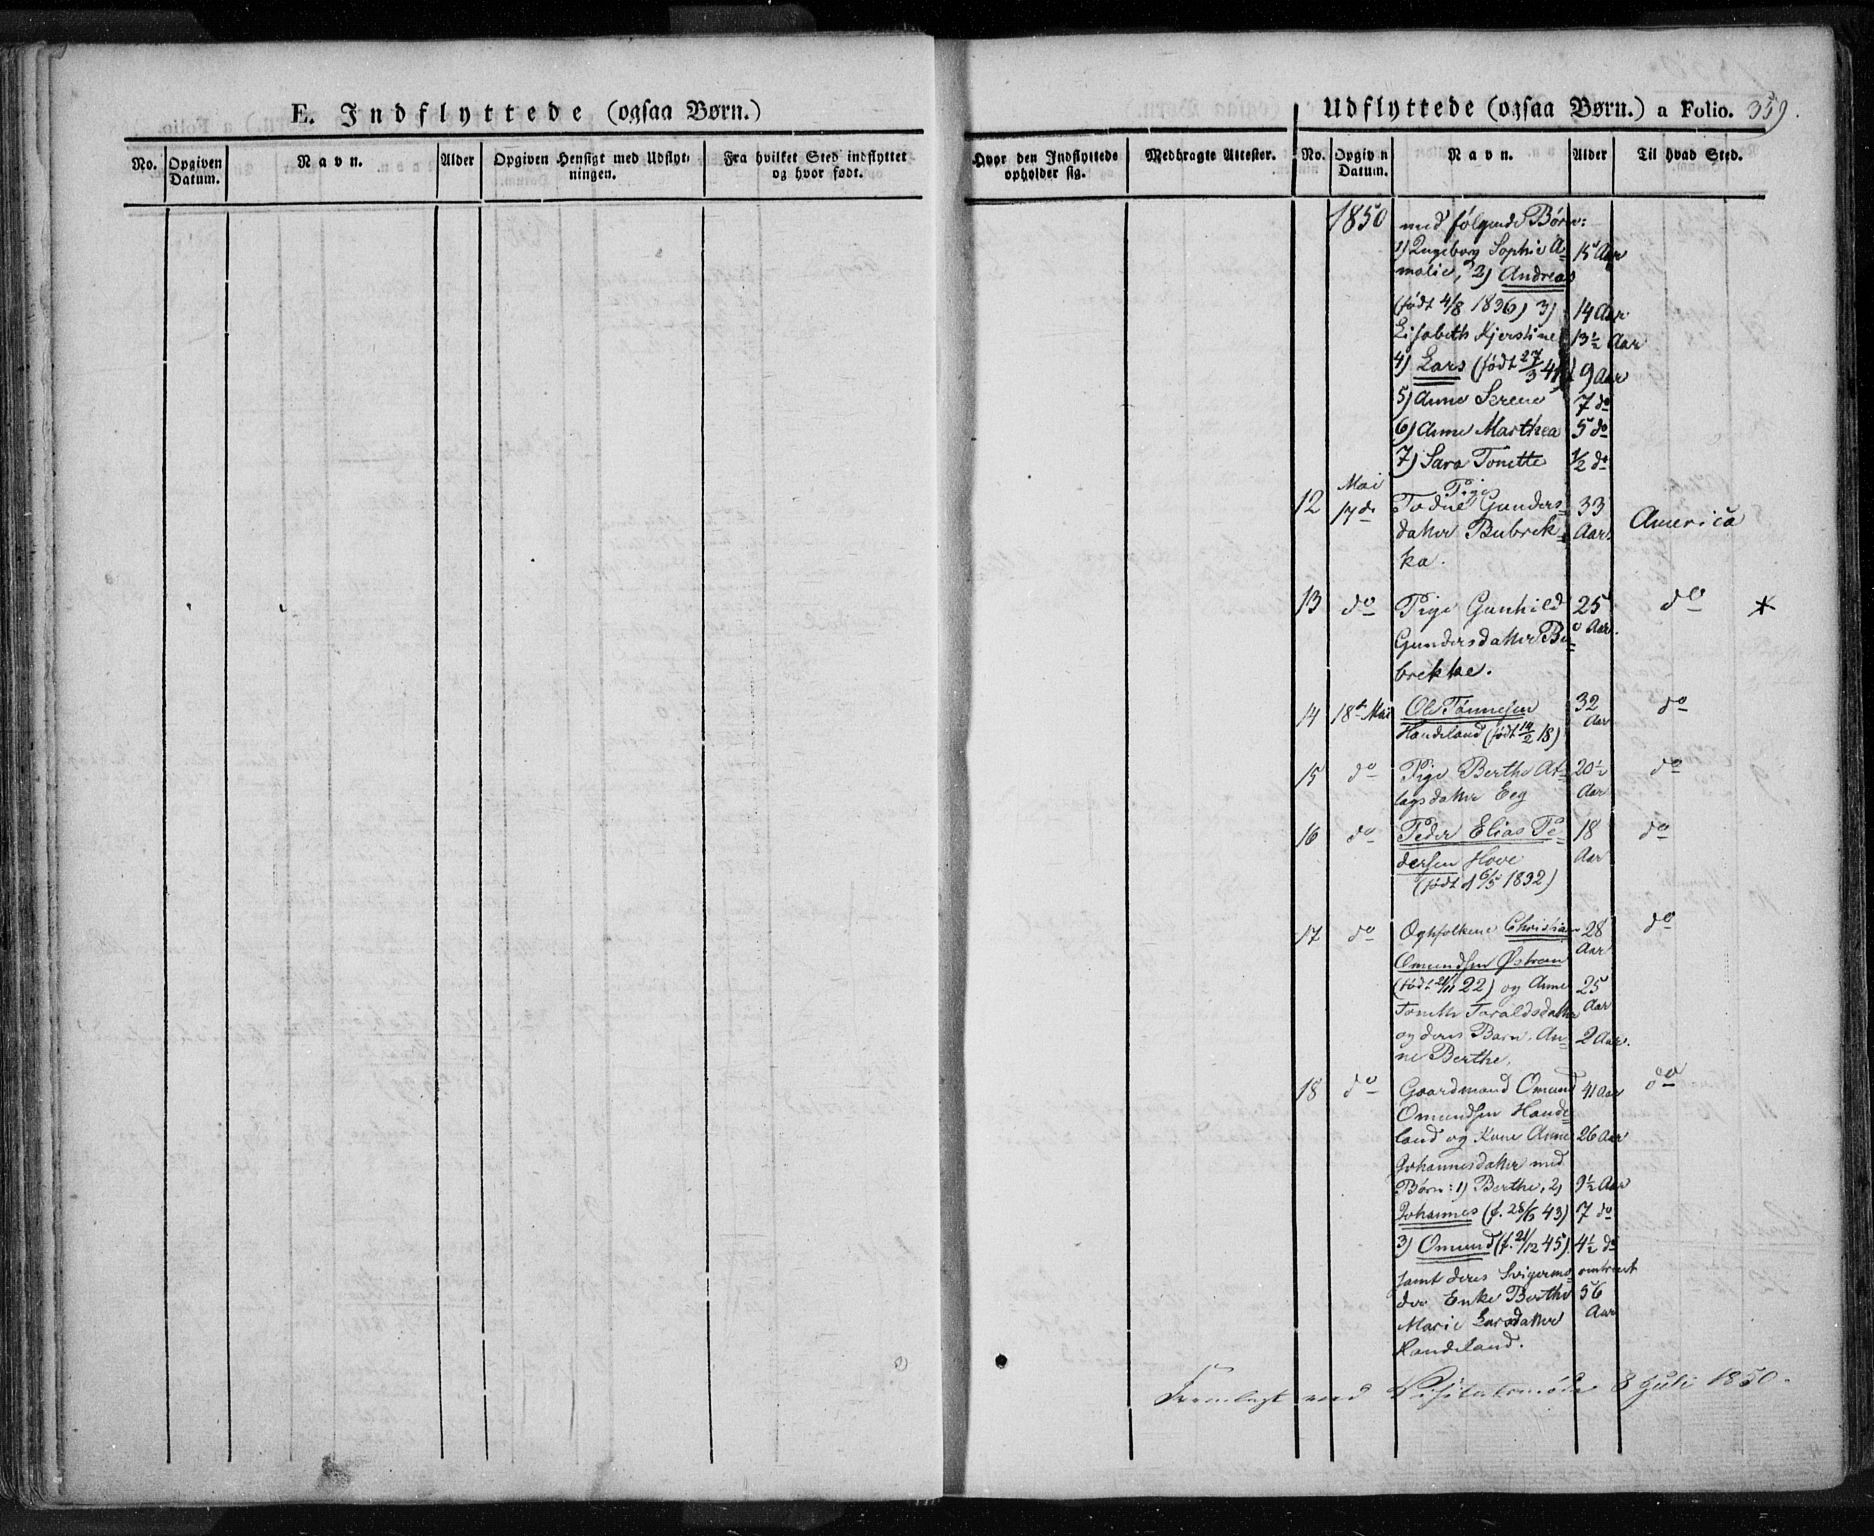 E. Indflyttede (ogsaa Børn.)
No. Opgiven Datum. Navn. Alder Opgiven Hensigt med Udflytningen. Fra hvilket Sted indflyttet og hvor født.
Udflyttede (ogsaa Børn.) a Folio. 359.
Hvor den Indflyttede opholder sig. Medbragte Attester. No. Opgiven Datum. Navn. Alder Til hvad Sted.
1850 med følgende Børn:
1) Ingeborg Sophie A- 15 Aar
malie, 2) Andreas
(født 4/8 1836) 3) 14 Aar
Lisabeth Kjerstine 13½ Aar
4) Lars (født 27/3 41) 9 Aar
5) Anne Serene 7 do
6) Anne Marthea 5 do
7) Sara Tonette ½ do
Mai Pige
12 17de Todne Gunders- 33
datter Bubrek- Aar. America
ka.
13 do Pige Gunhild 25 do *
Gundersdatter Bu- Aar.
brekke.
14 18de Mai Ole Tønnesen 32 do
Handeland (født 14/2 18) Aar
15 do Pige Berthe At- 20½ do
lagsdatter Eeg Aar
16 do Peder Elias Pe- 18 do
dersen Hove Aar
(født d 6/5 1832)
17 do Egtfolkene Christian 28 do
Omundsen Østrem Aar
(født 21/11 22) og Anne 25
Tonette Toraldsdatter Aar
og deres Barn, An- 2 Aar.
ne Berthe.
18 do Gaardmand Omund 41 Aar do
Omundsen Hande-
land og Kone Anne 26 Aar
Johannesdatter med
Børn: 1) Berthe, 2) 9½ Aar
Johannes (f. 28/5 43) 7 do
3) Omund (f. 21/12 45) 4½ do
samt deres Svigermo- omtrent
der Enke Berthe 56
Marie Larsdatter Aar
Handeland.
Fremlagt ved Visitatsmøde 8 Juli 1850.